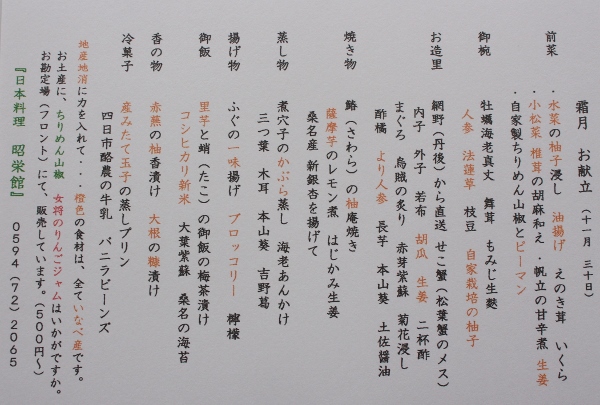 霜月 お献立 (十一月 三十日)
前菜
・水菜の柚子浸し 油揚げ えのき茸 いくら
・小松菜 椎茸の胡麻和え ・帆立の甘辛煮 生姜
・自家製ちりめん山椒とピーマン
御椀
牡蠣海老真丈 舞茸 もみじ生麩
人参 法蓮草 枝豆 自家栽培の柚子
お造里
網野(丹後)から直送 せこ蟹(松葉蟹のメス)
内子 外子 若布 胡瓜 生姜 二杯酢
まぐろ 烏賊の炙り 赤芽紫蘇 菊花浸し
酢橘 より人参 長芋 本山葵 土佐醤油
焼き物
鰆(さわら)の柚庵焼き
薩摩芋のレモン煮 はじかみ生姜
桑名産 新銀杏を揚げて
蒸し物
煮穴子のかぶら蒸し 海老あんかけ
三つ葉 木耳 本山葵 吉野葛
揚げ物
ふぐの一味揚げ ブロッコリー 檸檬
御飯
里芋と蛸(たこ)の御飯の梅茶漬け
コシヒカリ新米 大葉紫蘇 桑名の海苔
香の物
赤蕪の柚香漬け 大根の糠漬け
冷菓子
産みたて玉子の蒸しプリン
四日市酪農の牛乳 バニラビーンズ
地産地消に力を入れて・・・橙色の食材は、全ていなべ産です。
お土産に、ちりめん山椒 女将のりんごジャムはいかがですか。
お勘定場(フロント)にて、販売しています。(500円～)
『日本料理 昭栄館』 0594(72)2065